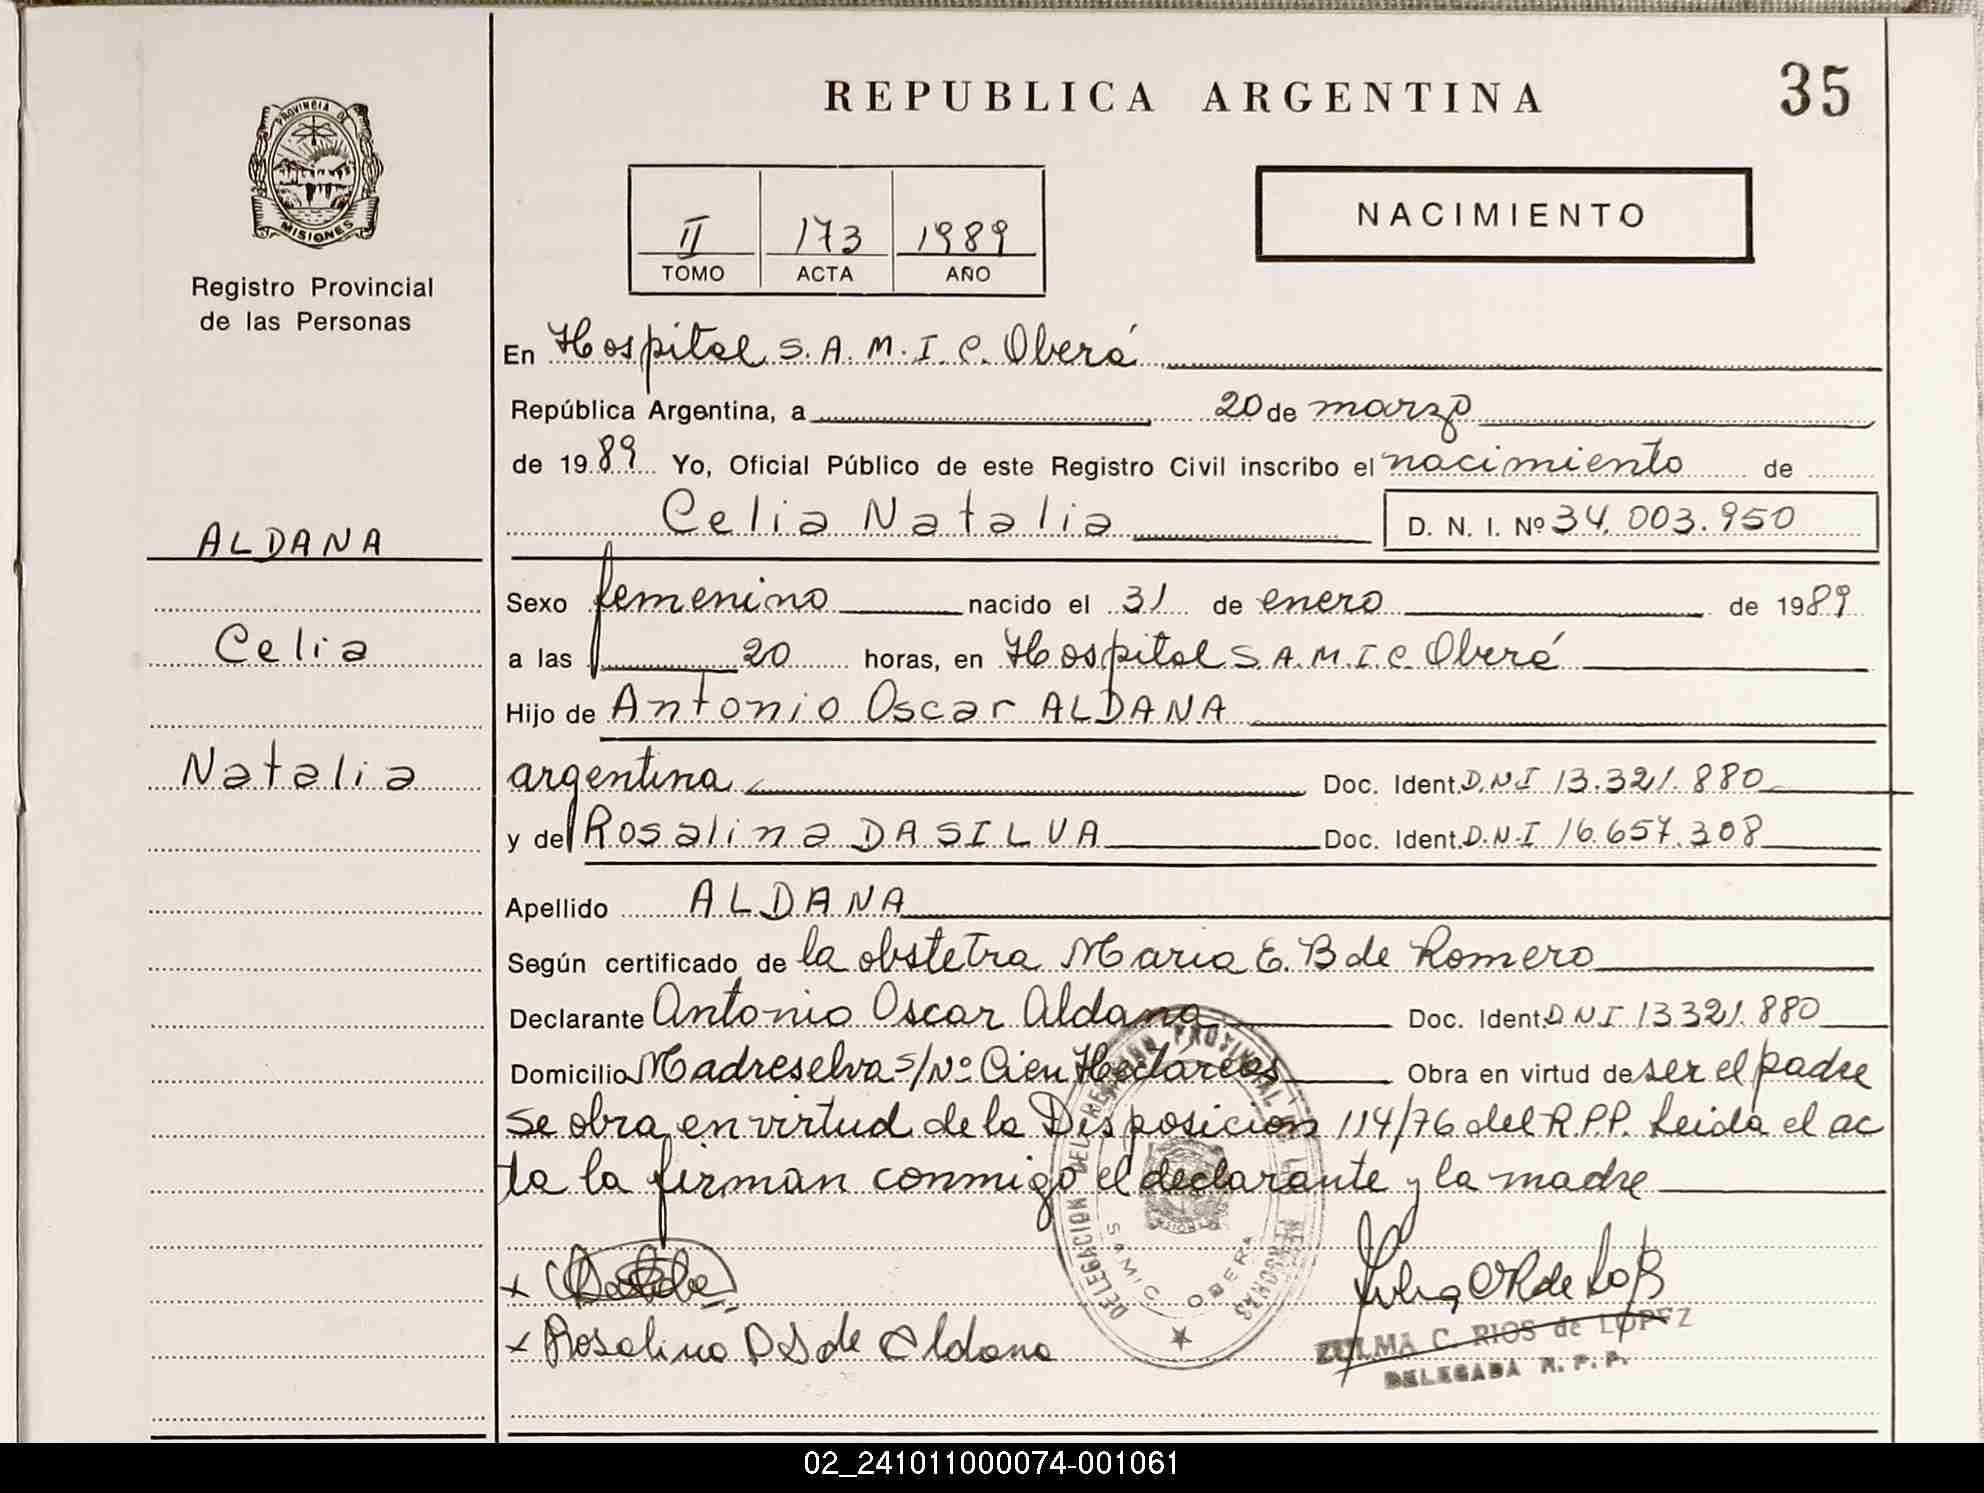 REPUBLICA ARGENTINA
35
PROVINCIA DE
MISIONES
Registro Provincial
de las Personas
II 173 1989
TOMO ACTA AÑO
NACIMIENTO
En Hospital S.A.M.I.C. Oberá
República Argentina, a 20 de marzo
de 1989 Yo, Oficial Público de este Registro Civil inscribo el nacimiento de
Celia Natalia D. N. I. Nº 34.003.950
ALDANA
Celia
Natalia
Sexo femenino nacido el 31 de enero de 1989
a las 20 horas, en Hospital S.A.M.I.C. Oberá
Hijo de Antonio Oscar ALDANA
argentina Doc. Ident. D.N.I 13.321.880
y de Rosalina DASILVA Doc. Ident. D.N.I 16.657.308
Apellido ALDANA
Según certificado de la obstetra Maria E. B de Romero
Declarante Antonio Oscar Aldana Doc. Ident. DNI 13321.880
Domicilio Madreselva s/Nº Cien Hectáreas Obra en virtud de ser el padre
se obra en virtud de la Disposicion 114/76 del R.P.P. Leida el ac
ta la firman conmigo el declarante y la madre
DELEGACION DEL REGISTRO PROVINCIAL DE LAS PERSONAS
SAMIC OBERA
x
x Rosalina DS de Aldana
ZULMA C. RIOS de LOPEZ
DELEGADA R. P. P.
02_241011000074-001061